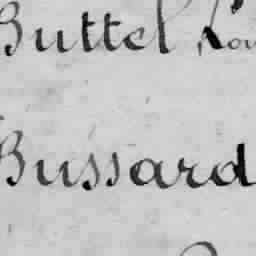 Buttel Lou
Bussard